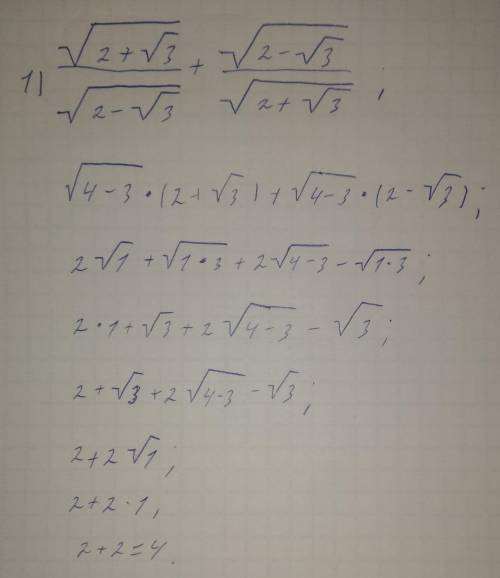 1) √(2+√3)/√(2-√3) + √(2-√3)/√(2+√3) ;
√(4-3)·(2+√3)+√(4-3)·(2-√3);
2√1+√(1·3)+2√(4-3)-√(1·3);
2·1+√3+2√(4-3)-√3;
2+√3+2√(4-3)-√3;
2+2√1;
2+2·1;
2+2=4.